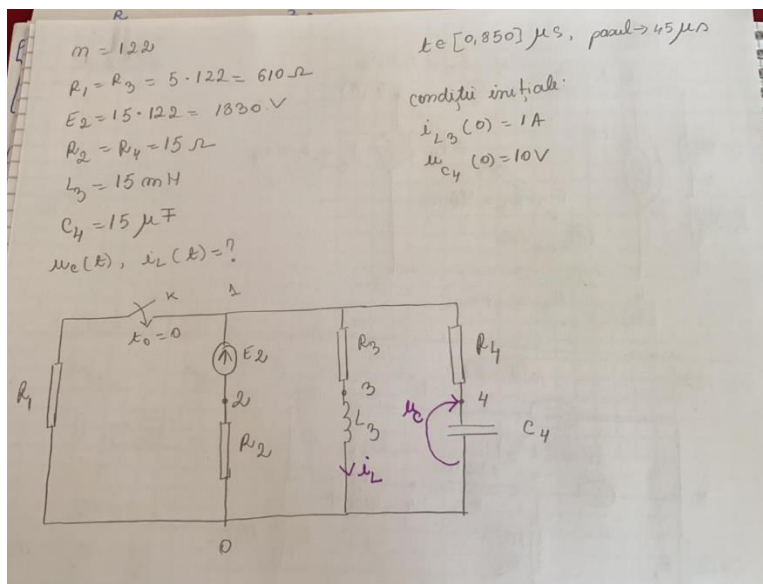 n = 122
R1 = R3 = 5·122 = 610 Ω
E2 = 15·122 = 1830 V
R2 = R4 = 15 Ω
L3 = 15 mH
C4 = 15 μF
uc(t), iL(t) = ?
t∈[0,850] μs, pasul → 45 μs
condiții inițiale:
iL3(0) = 1A
uC4(0) = 10V
K
1
t0 = 0
E2
R3
R4
R1
2
3
4
uc
L3
C4
R2
iL
0